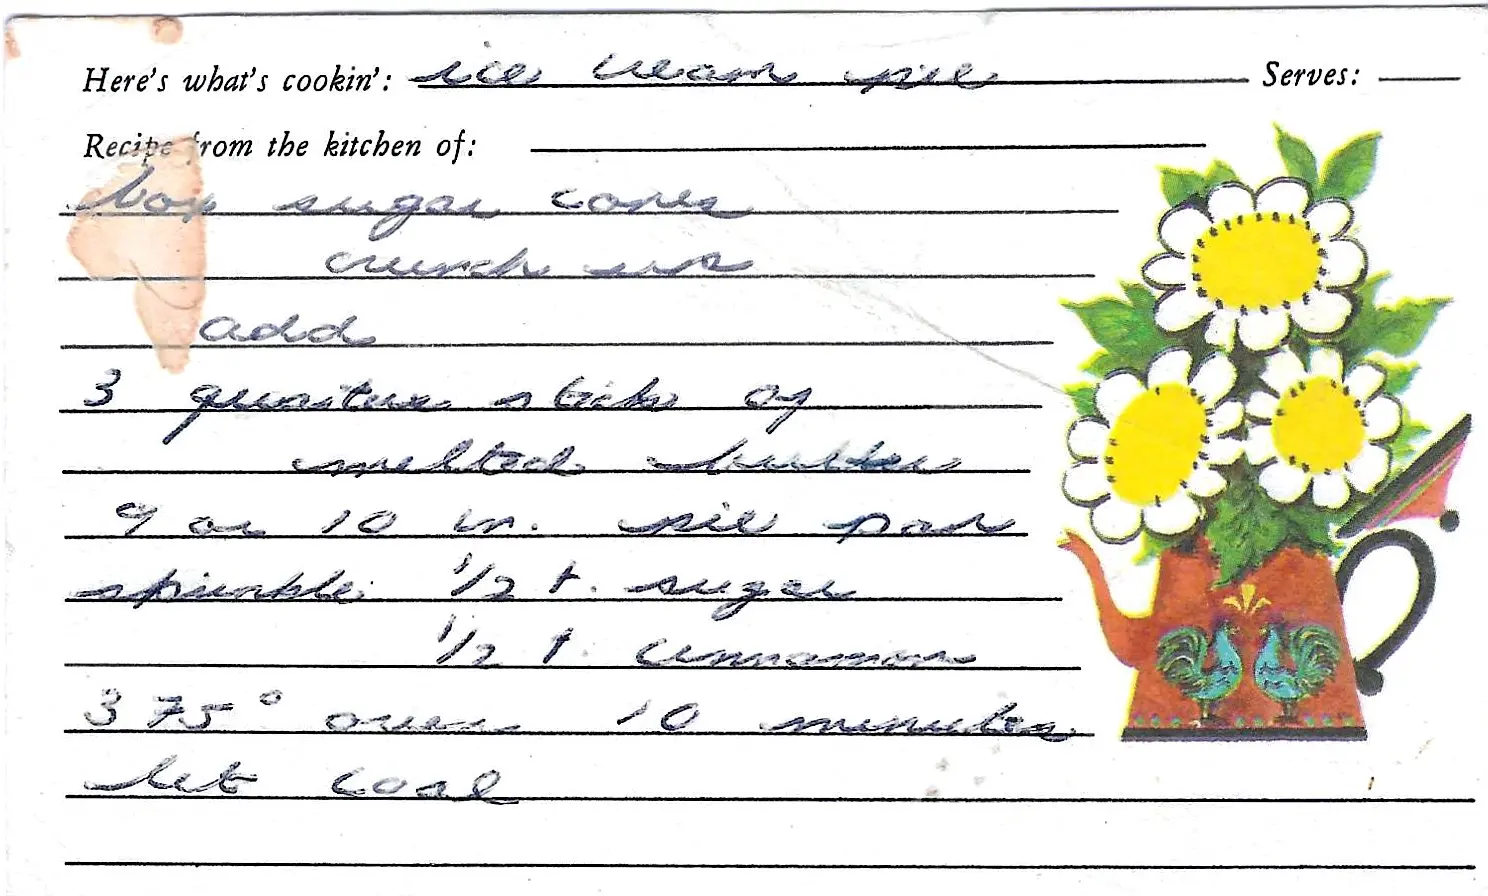 Here's what's cookin': ice cream pie Serves:
Recipe from the kitchen of:
box sugar cones
crunch up
add
3 quarter sticks of
melted butter
9 or 10 in. pie pan
sprinkle 1/2 t. sugar
1/2 t. cinnamon
375° oven 10 minutes
let cool